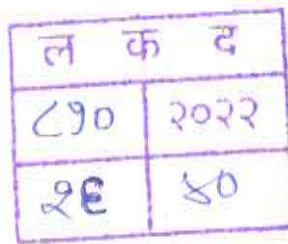 ल क द
८१० २०२२
२६ ४०